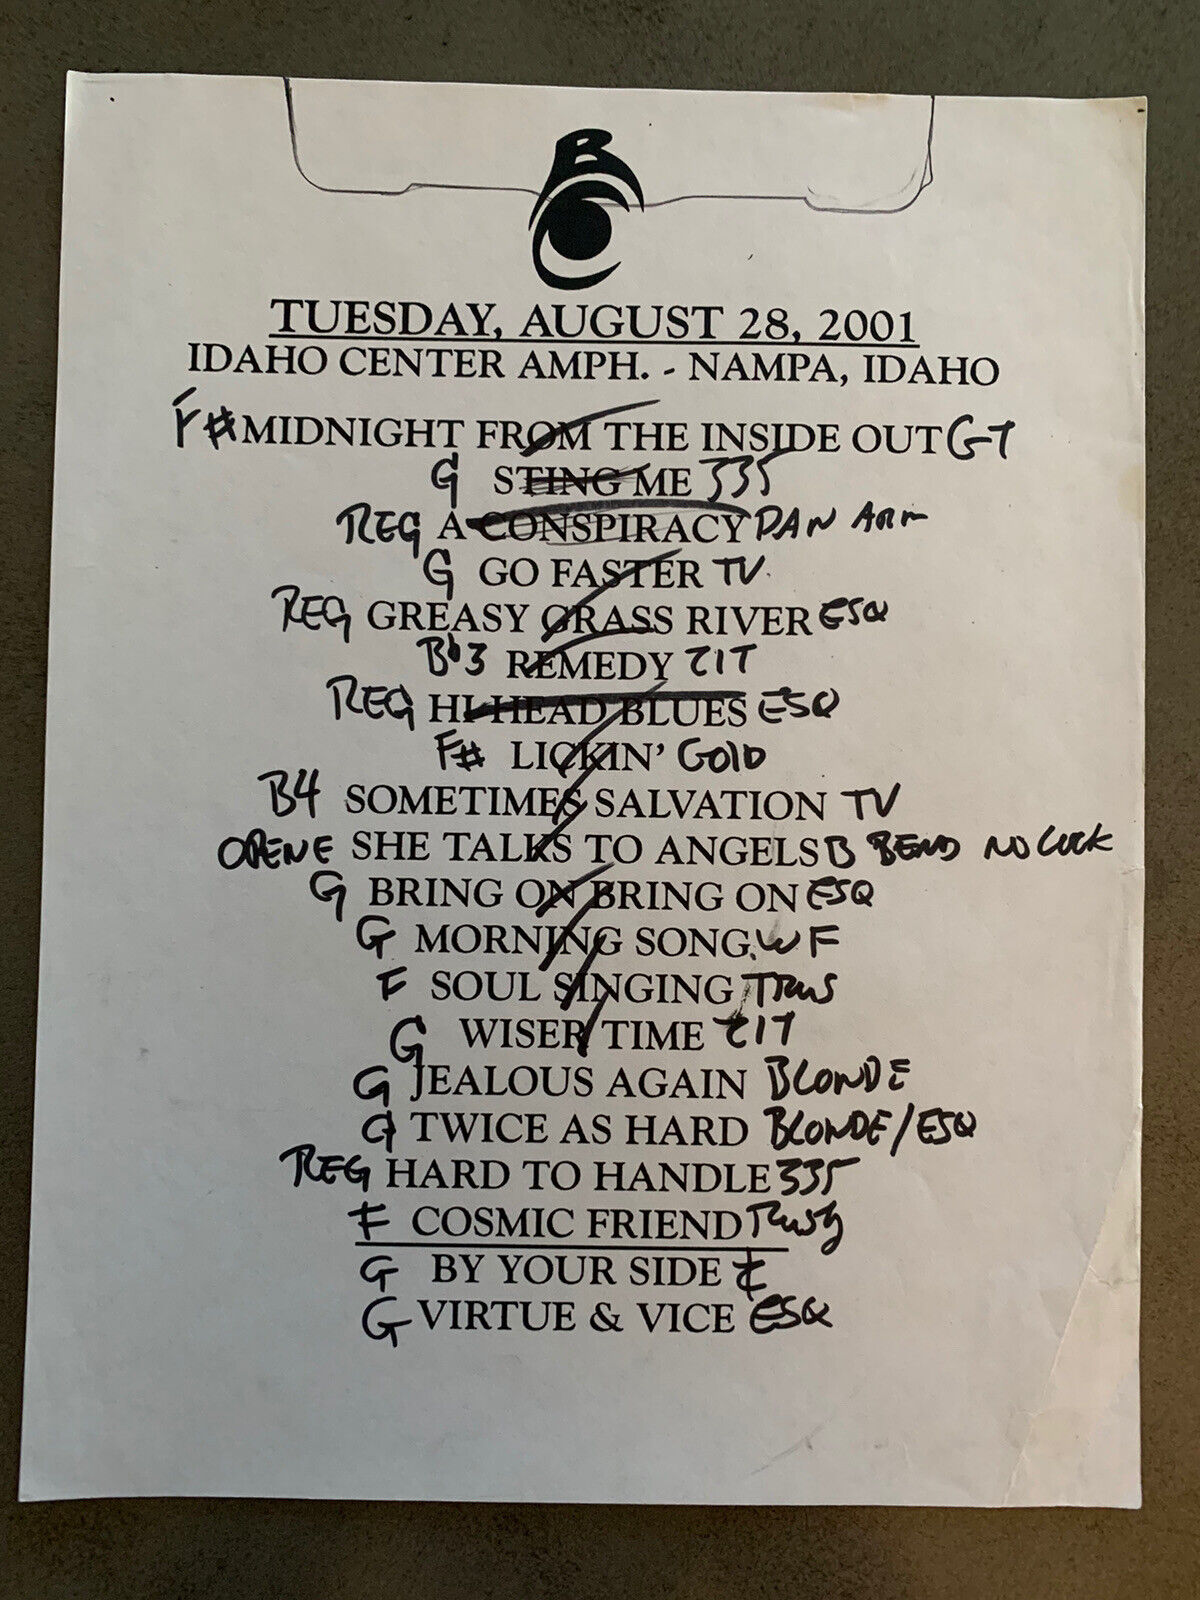 BC
TUESDAY, AUGUST 28, 2001
IDAHO CENTER AMPH. - NAMPA, IDAHO
F# MIDNIGHT FROM THE INSIDE OUT G-7
G STING ME 335
REG A CONSPIRACY DAN ARM
G GO FASTER TV
REG GREASY GRASS RIVER ESQ
Bb3 REMEDY ZIT
REG HI-HEAD BLUES ESQ
F# LICKIN' GOLD
B4 SOMETIMES SALVATION TV
OPEN E SHE TALKS TO ANGELS B BEND NO LOCK
G BRING ON BRING ON ESQ
G MORNING SONG WF
F SOUL SINGING
G WISER TIME ZIT
G JEALOUS AGAIN BLONDE
G TWICE AS HARD BLONDE/ESQ
REG HARD TO HANDLE 335
F COSMIC FRIEND Rusty
G BY YOUR SIDE
G VIRTUE & VICE ESQ